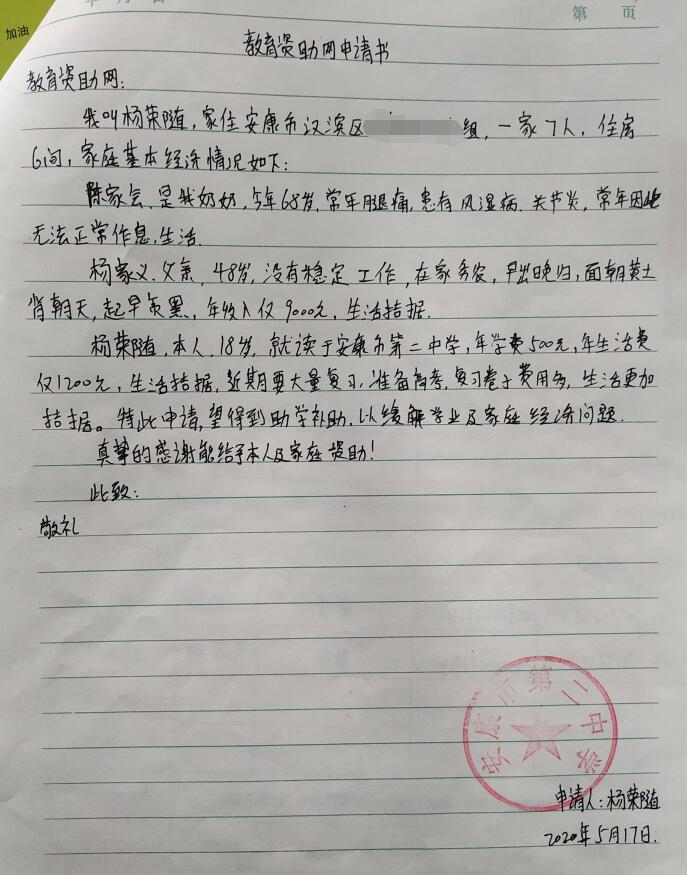 加油
第 页
教育资助网申请书
教育资助网:
我叫杨荣随,家住安康市汉滨区 组,一家7人,住房
6间,家庭基本经济情况如下:
陈家会,是我奶奶,今年68岁,常年腿痛,患有风湿病、关节炎,常年因此
无法正常作息、生活.
杨家义、父亲,48岁,没有稳定工作,在家务农,早出晚归,面朝黄土
背朝天,起早贪黑,年收入仅9000元,生活拮据.
杨荣随,本人,18岁,就读于安康市第二中学,年学费500元,年生活费
仅1200元,生活拮据,近期要大量复习,准备高考,复习卷子费用多,生活更加
拮据。特此申请,望得到助学补助,以缓解学业及家庭经济问题.
真挚的感谢能给予本人及家庭资助!
此致:
敬礼
安康市第二中学
申请人:杨荣随
2020年5月17日.